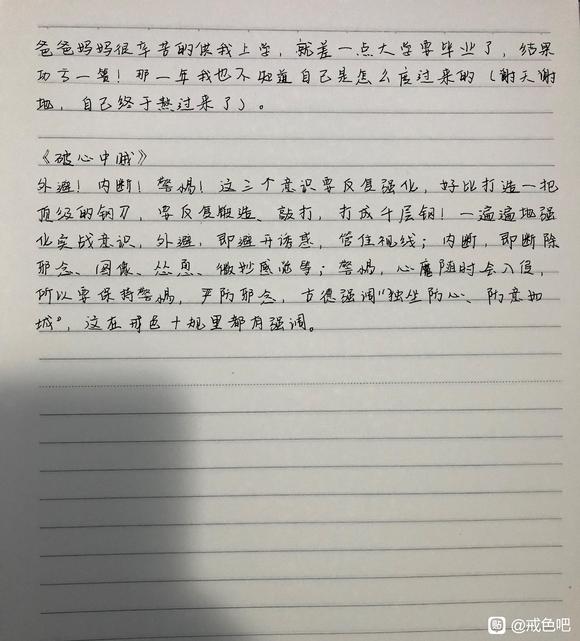 爸爸妈妈很辛苦的供我上学，就差一点大学要毕业了，结果
功亏一篑！那一年我也不知道自己是怎么度过来的（谢天谢
地，自己终于熬过来了）。
《破心中贼》
外避！内断！警惕！这三个意识要反复强化，好比打造一把
顶级的钢刀，要反复锻造、敲打，打成千层钢！一遍遍地强
化实战意识，外避，即避开诱惑，管住视线；内断，即断除
邪念、图像、怂恿、微妙感觉等；警惕，心魔随时会入侵，
所以要保持警惕，严防邪念，古德强调“独坐防心、防意如
城”，这在戒色十规里都有强调。
贴 @戒色吧